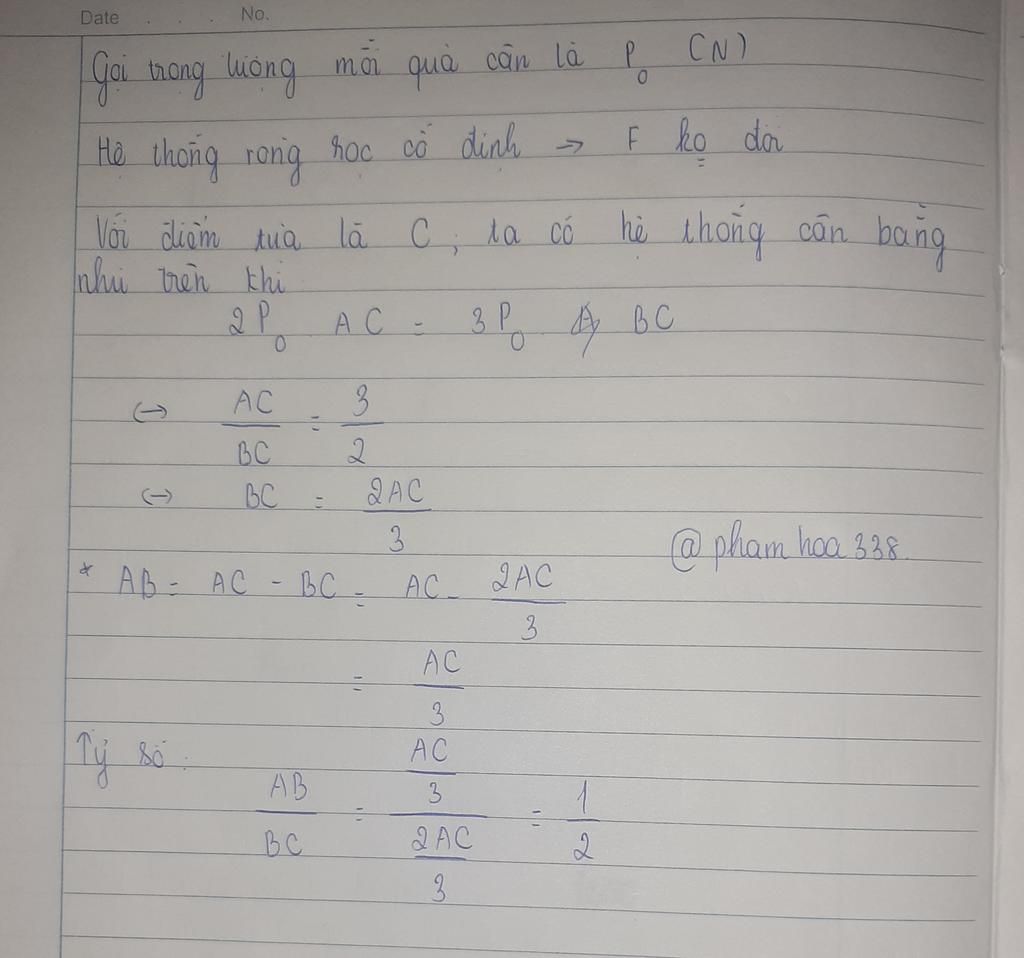 Date . . . No.
Gọi trọng lượng mỗi quả cân là P₀ (N)
Hệ thống ròng rọc cố định → F ko đổi
Với điểm tựa là C, ta có hệ thống cân bằng
như trên khi
2P₀ AC = 3P₀ BC
↔ AC/BC = 3/2
↔ BC = 2AC/3
@phamhoa338
* AB = AC - BC = AC - 2AC/3
= AC/3
Tỷ số:
AB/BC = (AC/3)/(2AC/3) = 1/2